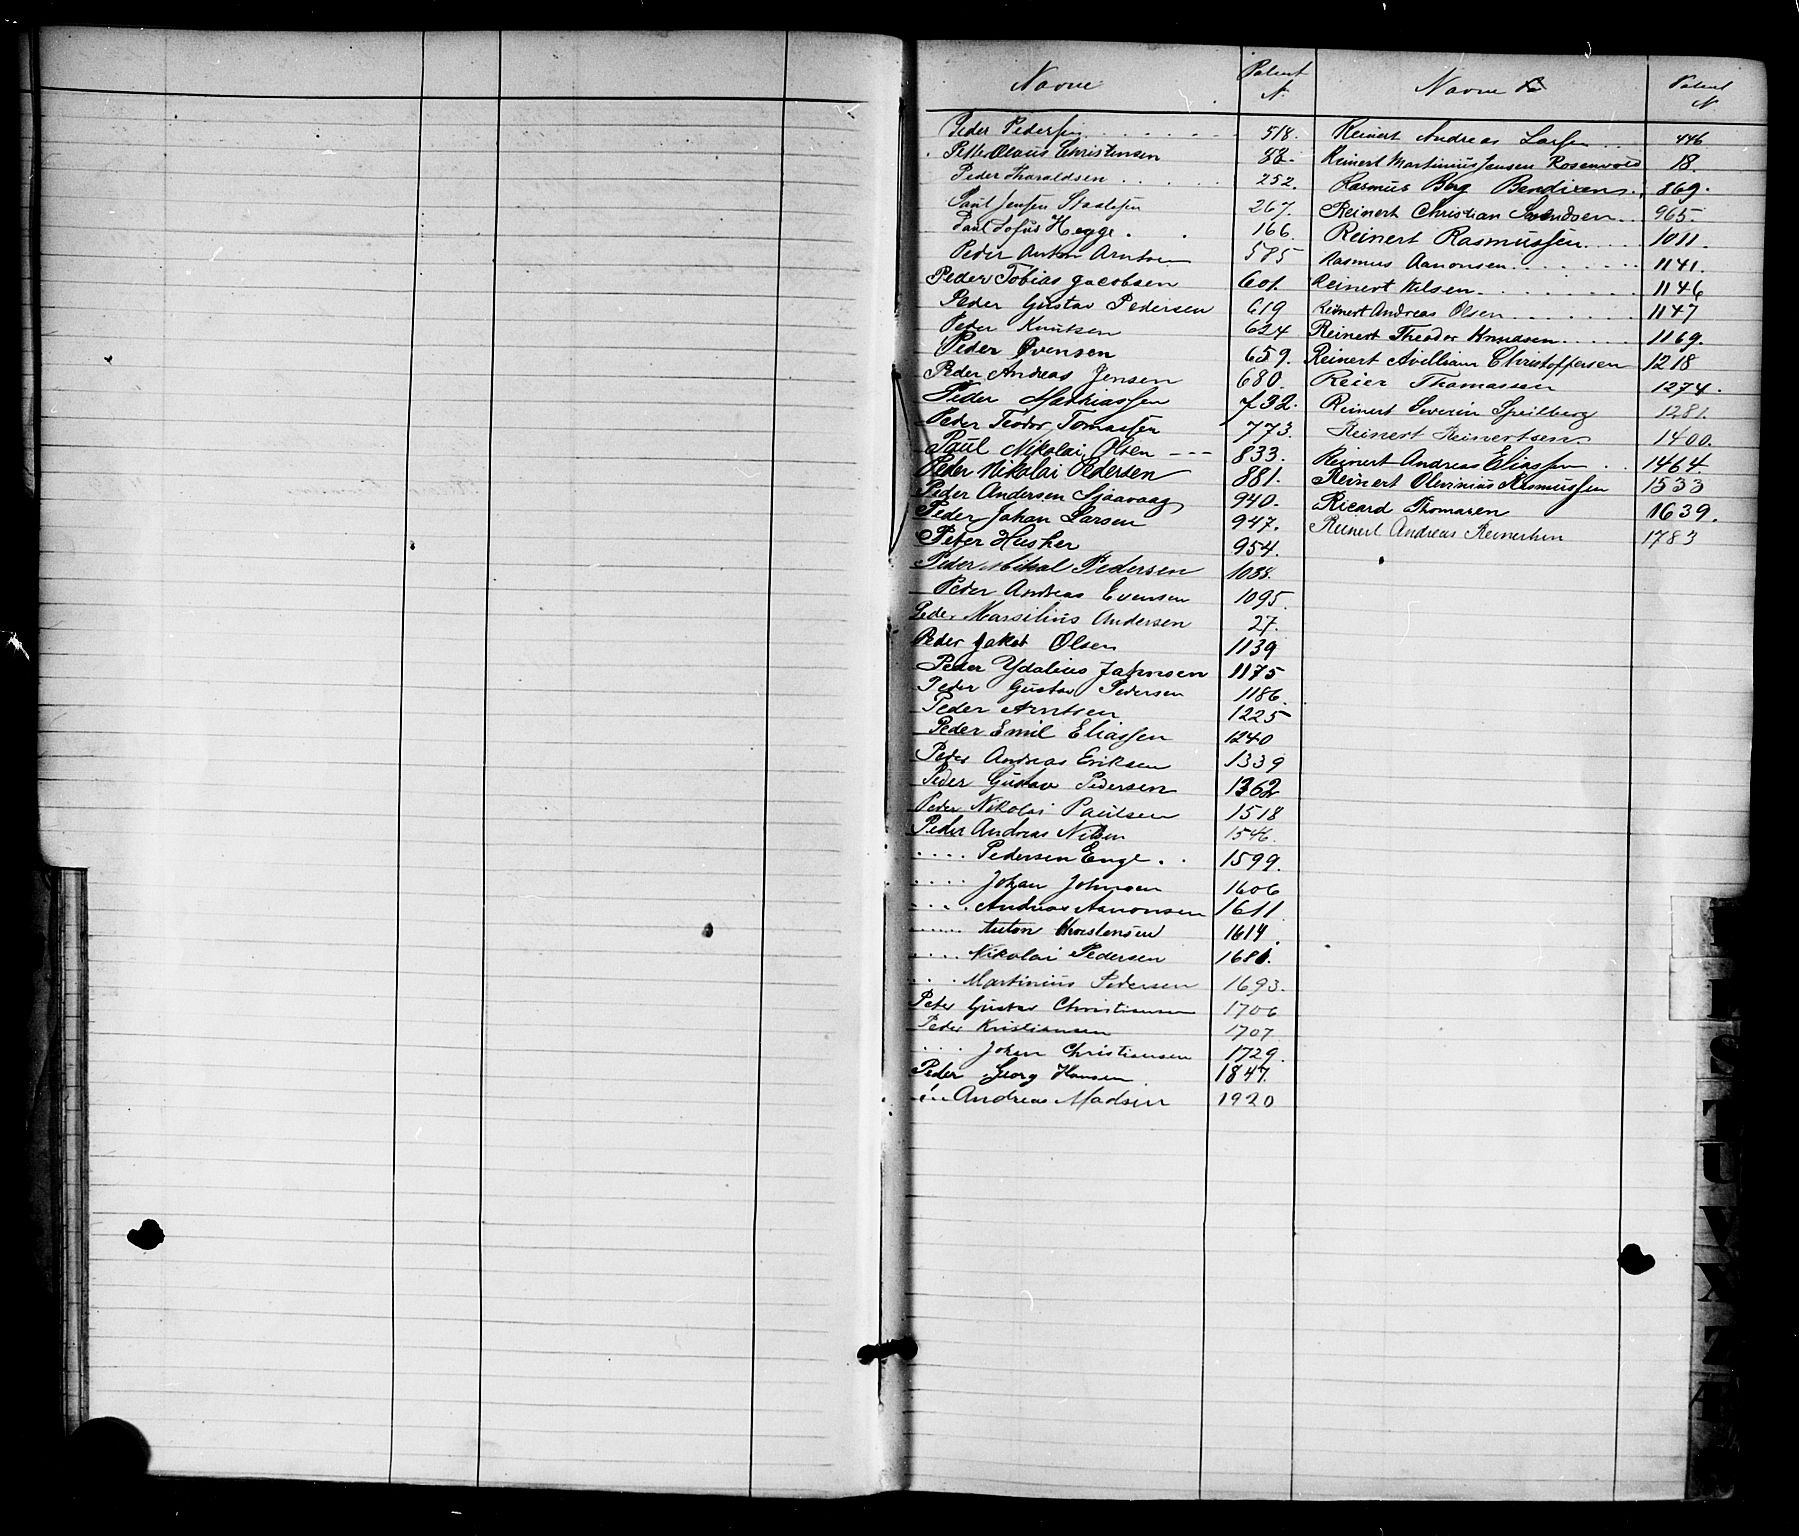 Navne Patent N.
Peder Pederssen 518.
Petter Olaus Christensen 88.
Peder Haraldsen 252.
Paul Jenssen Staalesen 267.
Paul Tofus Hegge. 166.
Peder Anton Arntsen 585
Peder Tobias Jacobsen 601.
Peder Gustav Pedersen 619
Peter Knutsen 624
Peder Evensen 659.
Peder Andreas Jensen 680.
Peder Mathiassen 732.
Peder Teodor Tomassen 773.
Paul Nikolai Olsen --- 833.
Peder Nikolai Pedersen 881.
Peder Andersen Sjaavaag 940.
Peder Johan Larsen 947.
Peter Husher 954.
Peder Mikal Pedersen 1038.
Peder Andreas Evensen 1095.
Peder Marselius Andersen 27.
Peder Jakob Olsen 1139
Peder Ydalius Jahnsen 1175
Peder Gustav Pedersen 1186.
Peder Arntsen 1225
Peder Emil Eliassen 1240
Peder Andreas Eriksen 1339
Peder Gustav Pedersen 1362
Peder Nikolai Paulsen 1518
Peder Andreas Nilsen 1546.
.... Pedersen Enge. . 1599.
.... Johan Johnsen 1606
.... Andreas Aanonsen 1611
..... Anton Thorstensen 1614.
.... Nikolai Pedersen 1681.
... Martinius Pedersen 1693.
Peter Gustav Christiansen 1706
Peder Kristiansen 1707
.... Johan Christiansen 1729.
Peder Georg Hansen 1847.
... Andreas Madsen 1920
Navne R Patent N
Reinert Andreas Larsen .. 446
Reinert Martinius Jensen Rosenvold 18.
Rasmus Berg Bendixen. 869.
Reinert Christian Svendsen.. 965
Reinert Rasmussen.... 1011.
Rasmus Aanonsen........ 1141.
Reinert Nilsen........ 1146
Reinert Andreas Olsen....... 1147
Reinert Theodor Knudsen..... 1169.
Reinert Avilliam Christoffersen 1218
Reier Thomassen 1274.
Reinert Severin Speilberg 1281.
Reinert Reinertsen 1400.
Reinert Andreas Eliassen . . 1464
Reinert Olevinius Rasmussen 1533
Ricard Thomasen 1639.
Reinert Andreas Reinertsen 1783
S
T
U
V
X
Z